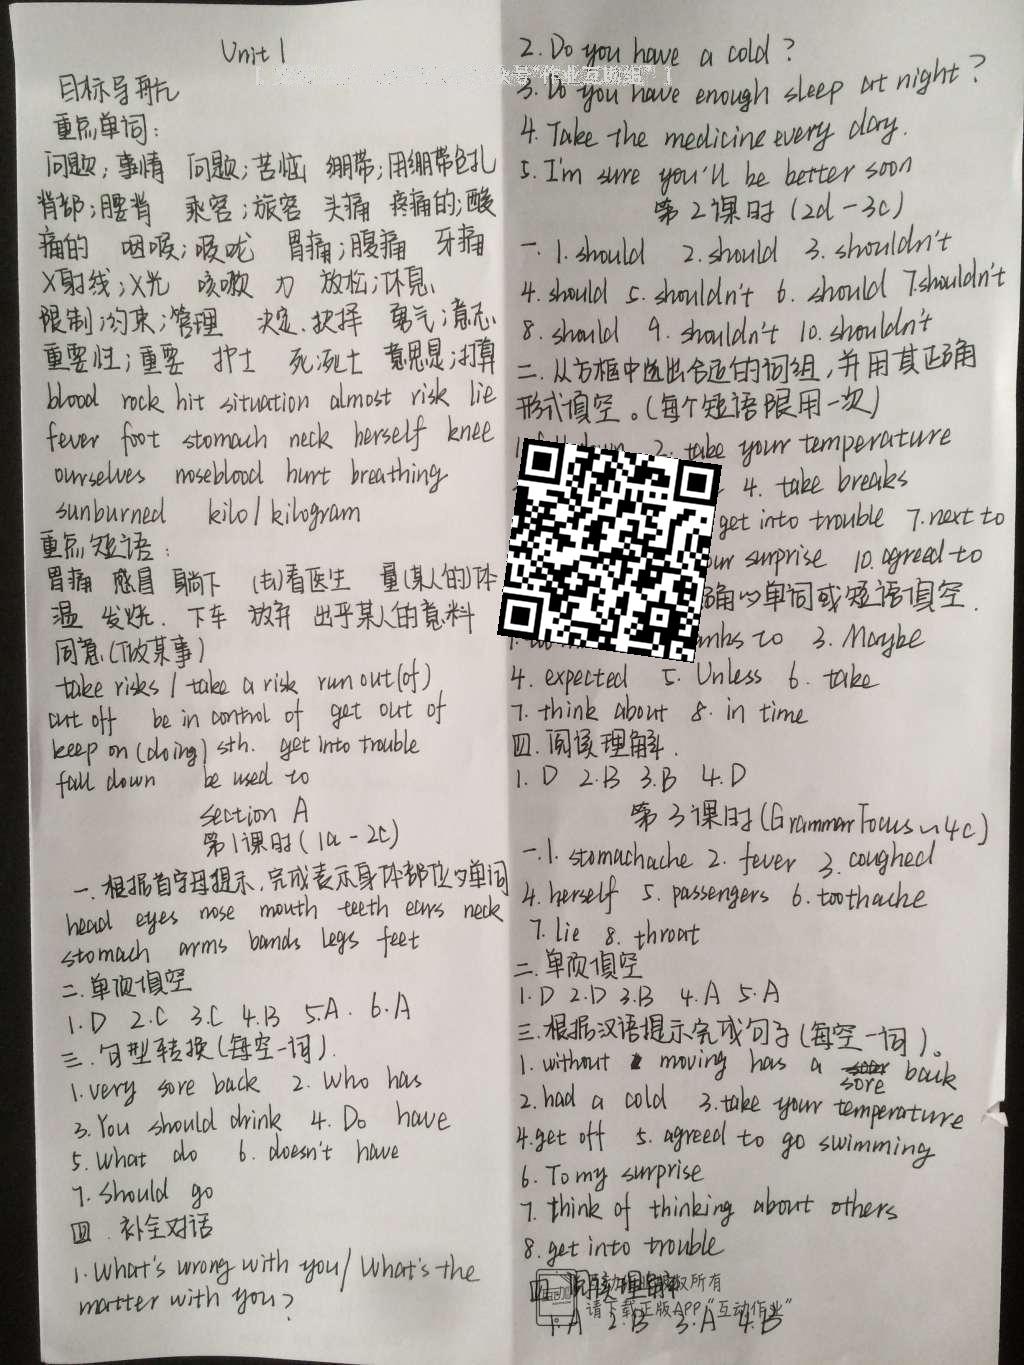 Unit 1
目标导航
重点单词：
问题；事情 问题；苦恼 绷带；用绷带包扎
背部；腰背 乘客；旅客 头痛 疼痛的；酸
痛的 咽喉；喉咙 胃痛；腹痛 牙痛
X射线；X光 咳嗽 力 放松；休息
限制；约束；管理 决定．抉择 勇气；意志
重要性；重要 护士 死；死亡 意思是；打算
blood rock hit situation almost risk lie
fever foot stomach neck herself knee
ourselves nosebleed hurt breathing
sunburned kilo/kilogram
重点短语：
胃痛 感冒 躺下 (去)看医生 量(某人的)体
温 发烧． 下车 放弃 出乎某人的意料
同意(做某事)
take risks / take a risk run out(of)
cut off be in control of get out of
keep on (doing) sth. get into trouble
fall down be used to
section A
第1课时(1a-2c)
一．根据首字母提示．完成表示身体部位的单词
head eyes nose mouth teeth ears neck
stomach arms hands legs feet
二．单项填空
1.D 2.C 3.C 4.B 5.A. 6.A
三．句型转换(每空一词)．
1.very sore back 2. Who has
3.You should drink 4. Do have
5. What do 6. doesn't have
7. should go
四．补全对话
1. What's wrong with you/ What's the
matter with you?
2. Do you have a cold?
3. Do you have enough sleep at night?
4. Take the medicine every day.
5. I'm sure you'll be better soon
第2课时(2d-3c)
一．1.should 2.should 3.shouldn't
4.should 5.shouldn't 6.should 7.shouldn't
8.should 9.shouldn't 10.shouldn't
二．从方框中选出合适的词组，并用其正确
形式填空。(每个短语限用一次)
2. take your temperature
4. take breaks
get into trouble 7.next to
surprise 10.agreed to
单词或短语填空．
to 3. Maybe
4. expected 5. Unless 6. take
7. think about 8. in time
四．阅读理解．
1. D 2.B 3.B 4.D
第3课时(Grammar Focus~4c)
一．1. stomachache 2. fever 3. coughed
4. herself 5. passengers 6. toothache
7. lie 8. throat
二．单项填空
1.D 2.D 3.B 4.A 5.A
三．根据汉语提示完成句子(每空一词)。
1. without moving has a sore back
2. had a cold 3.take your temperature
4.get off 5. agreed to go swimming
6. To my surprise
7. think of thinking about others
8. get into trouble
四．阅读理解
1.A 2.B 3.A 4.B
请下载正版APP"互动作业"